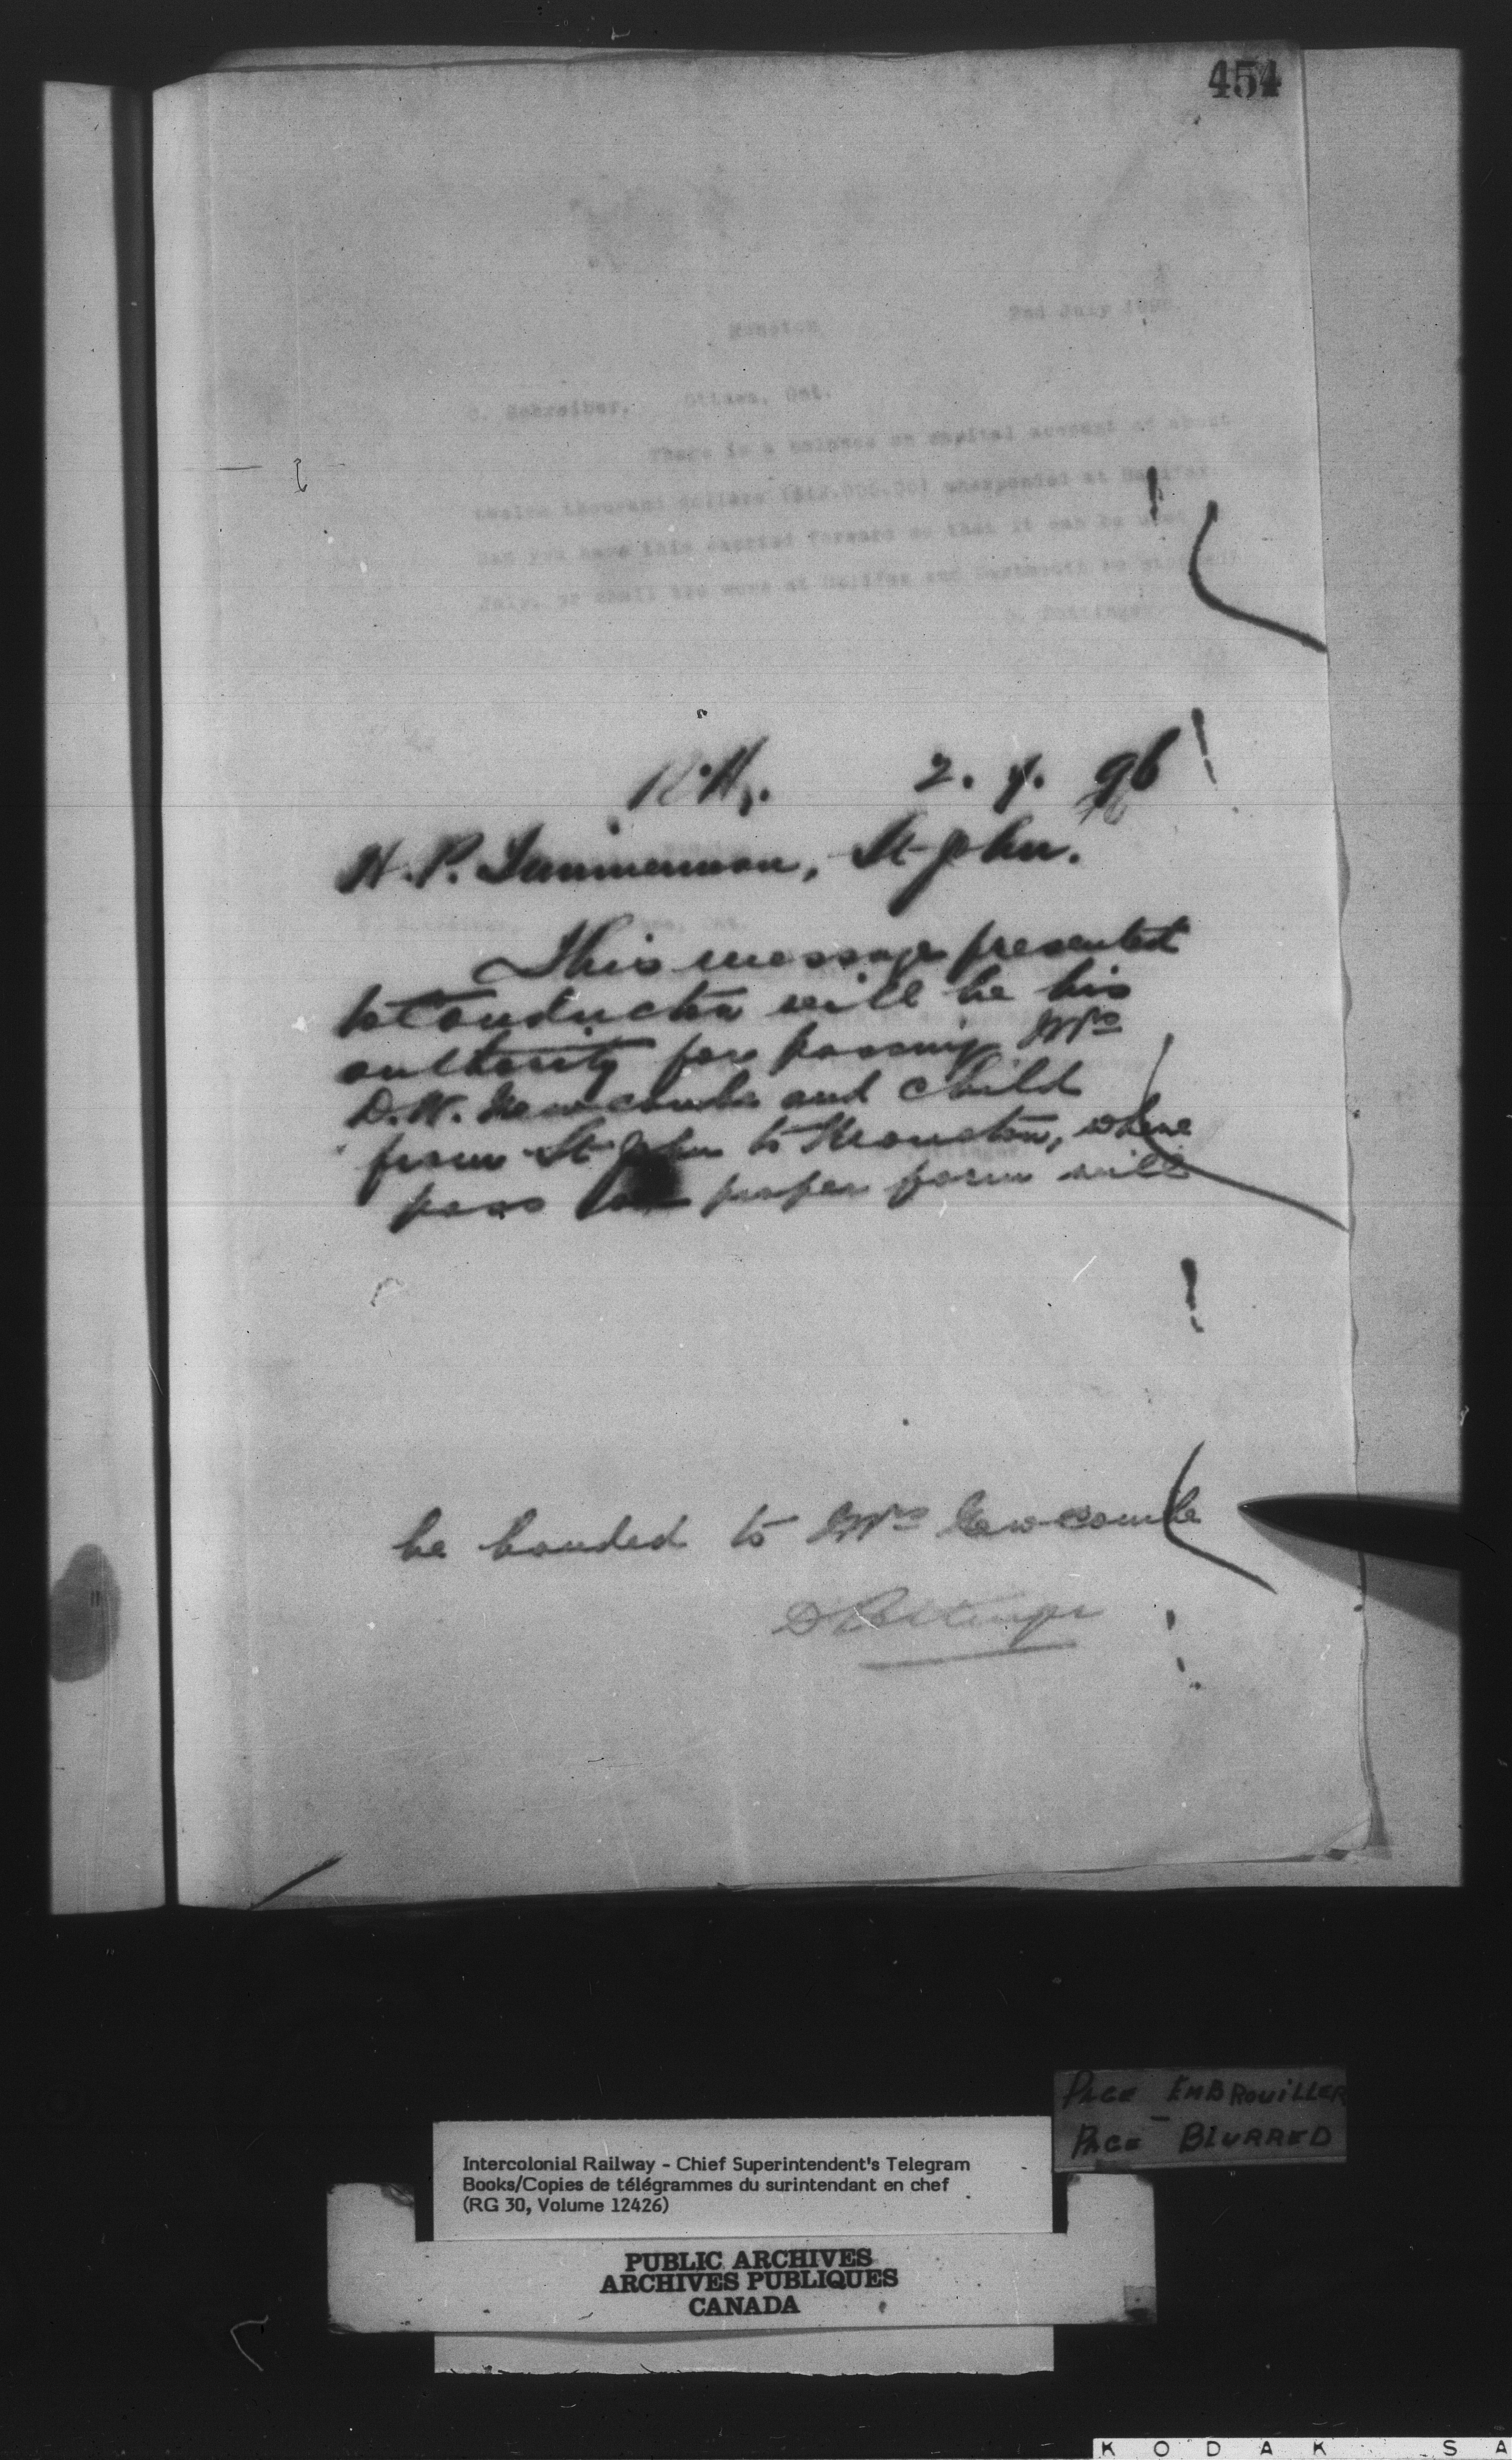 454
Moncton 2nd July 1896
C. Schreiber, Ottawa, Ont.
There is a balance on capital account of about
twelve thousand dollars ($12,000.00) unexpended at Halifax
Can you have this carried forward so that it can be used in
July, or shall the work at Halifax and Dartmouth be stopped?
D. Pottinger
2. 7. 96
H. P. Timmerman, St John.
This message presented
to Conductor will be his
authority for passing Mrs
D. W. Newcombe and child
from St John to Moncton, where
pass in proper form will
be handed to Mrs Newcombe
D Pottinger
PAGE EMBROUILLER
PAGE BLURRED
Intercolonial Railway - Chief Superintendent's Telegram
Books/Copies de télégrammes du surintendant en chef
(RG 30, Volume 12426)
PUBLIC ARCHIVES
ARCHIVES PUBLIQUES
CANADA
KODAK SA